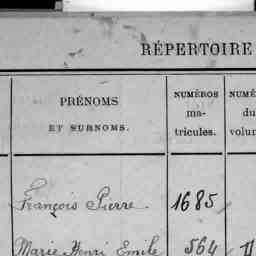 RÉPERTOIRE
PRÉNOMS
ET SURNOMS.
NUMÉROS
ma-
tricules.
NUMÉ
du
volum
François Pierre
1685
Marie Henri Emile
564